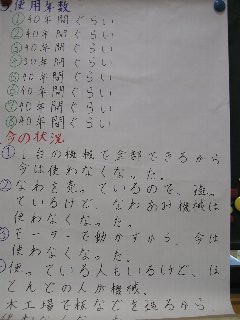 使用年数
①40年間ぐらい
②40年間ぐらい
③40年間ぐらい
④30年間ぐらい
⑤40年間ぐらい
⑥40年間ぐらい
⑦40年間ぐらい
⑧40年間ぐらい
今の状況
①1台の機械で全部できるから
今は使わなくなった。
②なわを売っているので、遠
ているけど、なわあみ機械は
使わなくなった。
③モーターで動かすから、今は
使わなくなった。
④使っている人もいるけど、ほ
とんどの人が機械。
木工場で板などを造るから、
使わなくなった。